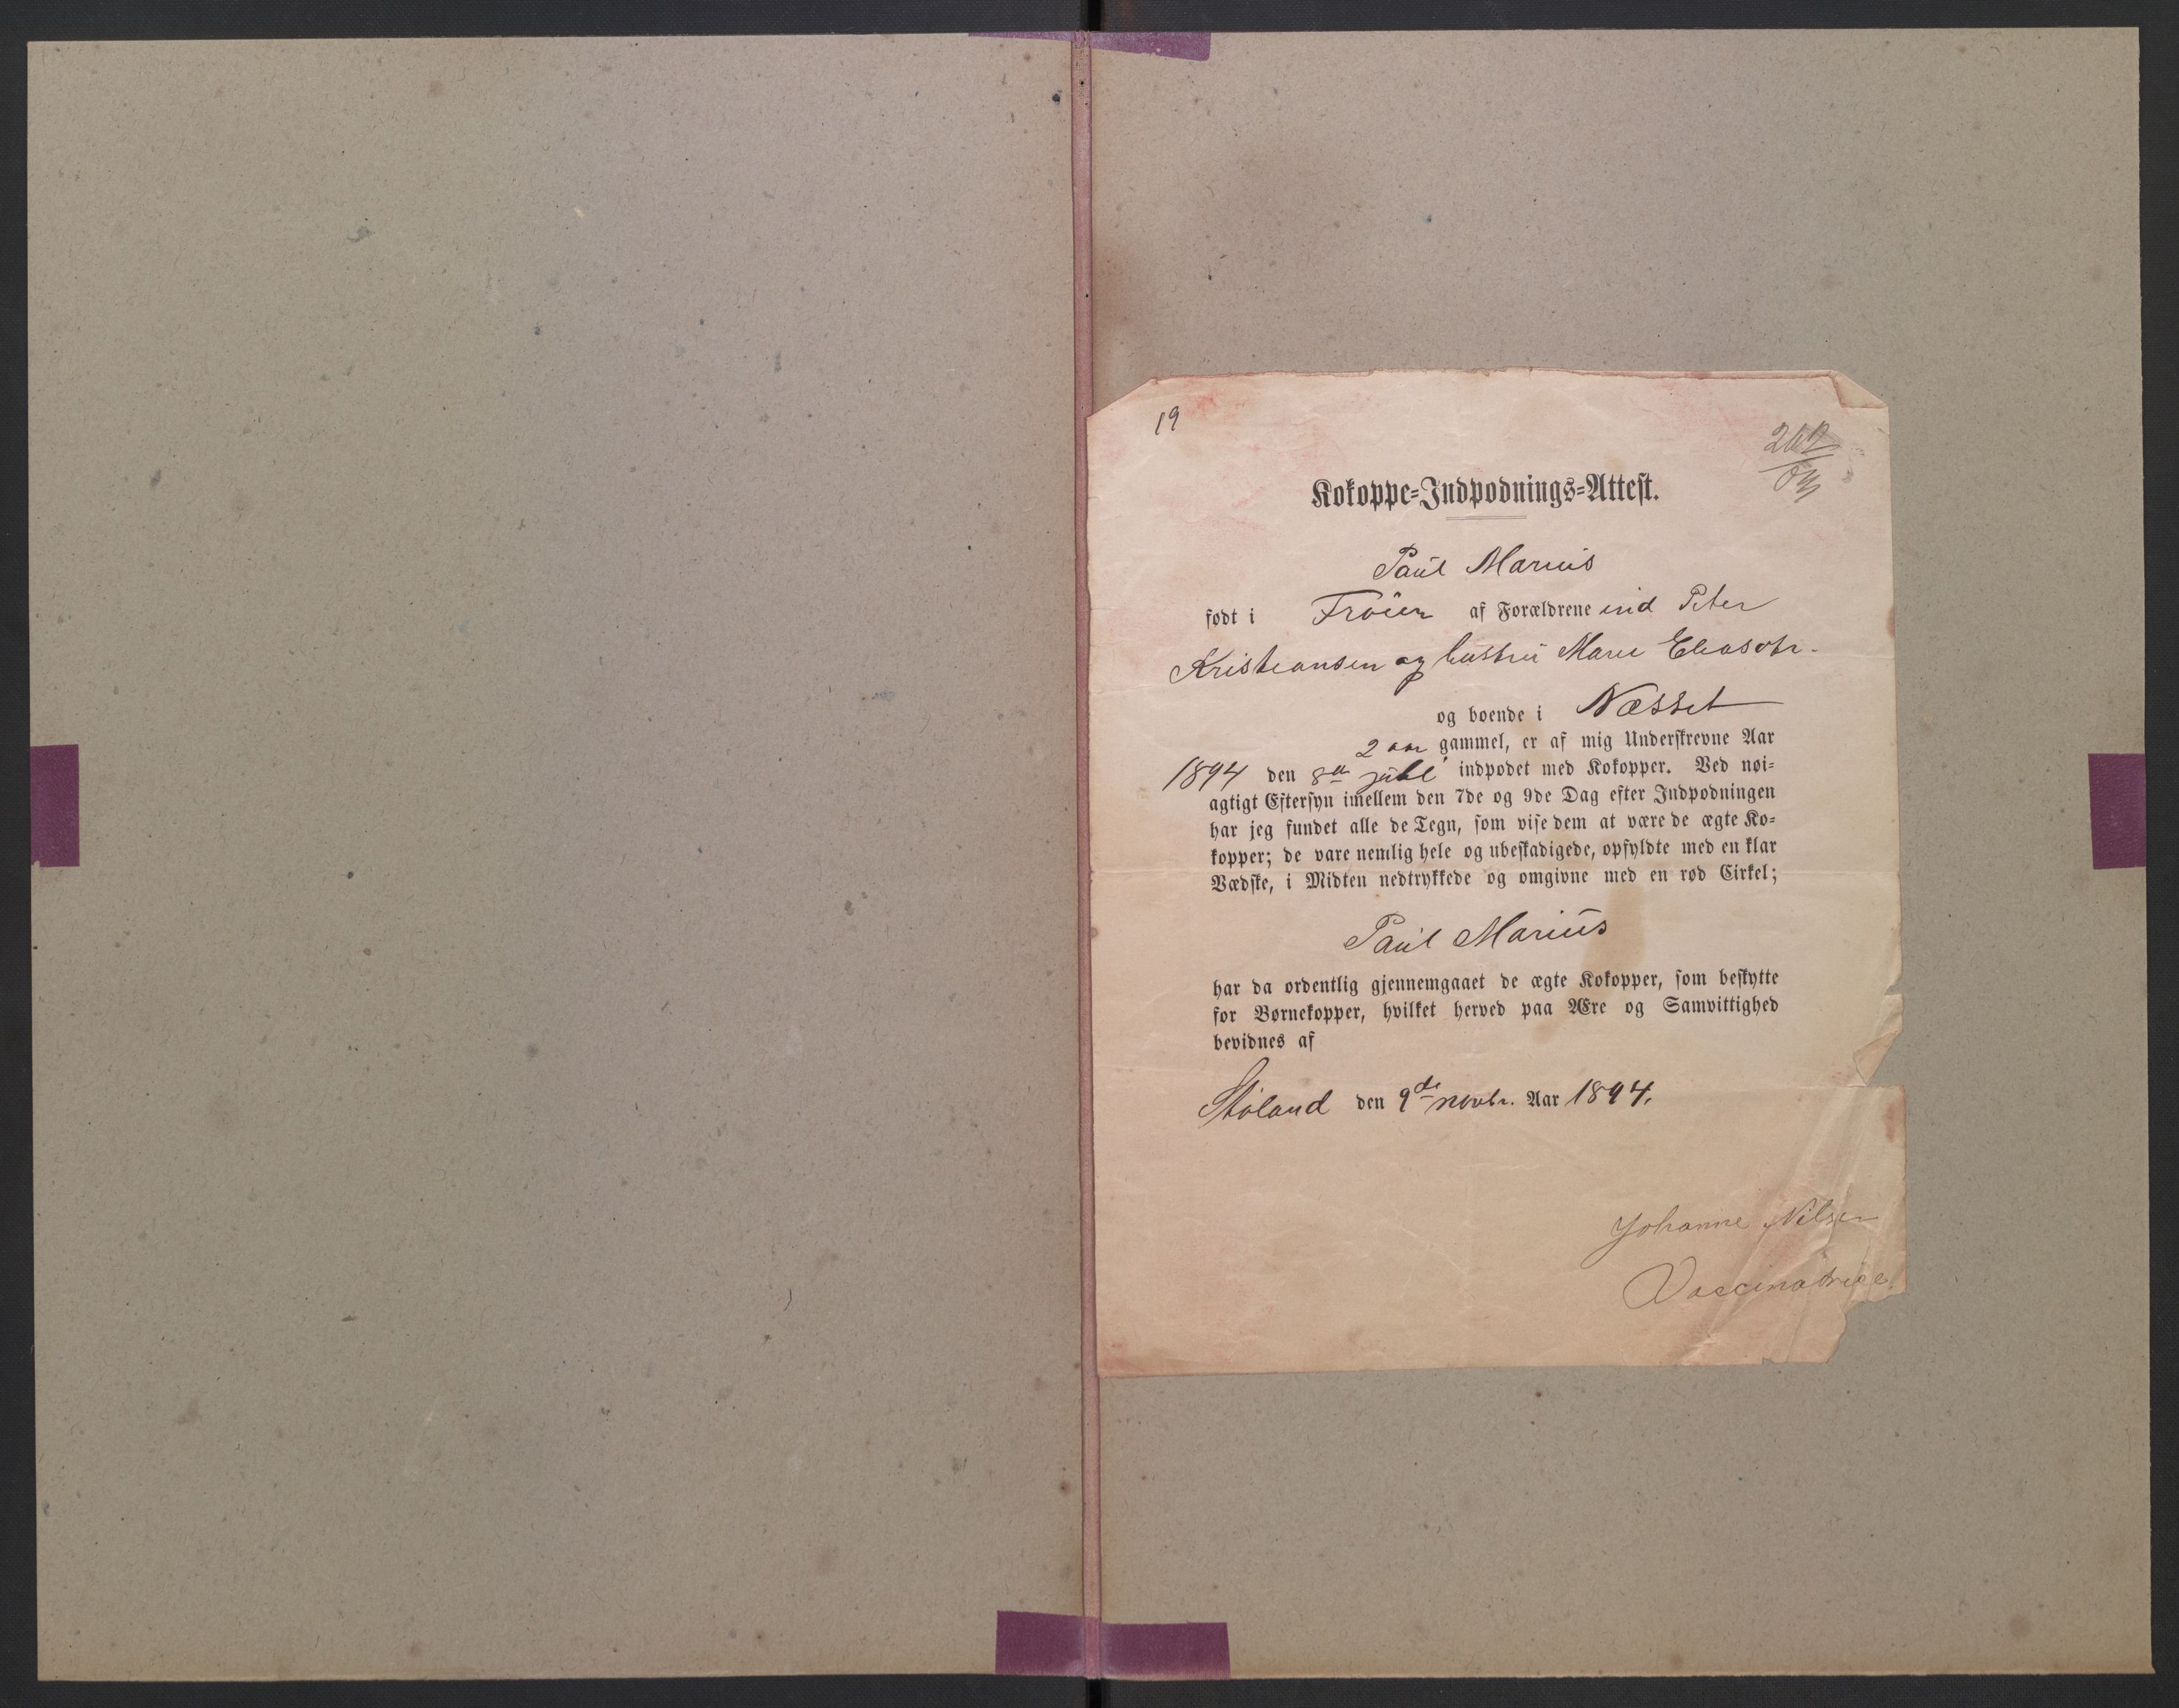 19
Kokoppe-Indpodnings-Attest.
Paul Marius
født i Frøien af Forældrene ind Peter
Kristiansen og hustru Marie Eliasdtr.
og boende i Næsset
2 aar gammel, er af mig Underskrevne Aar
1894 den 8de juli indpodet med Kokopper. Ved nøi-
agtigt Eftersyn imellem den 7de og 9de Dag efter Indpodningen
har jeg fundet alle de Tegn, som vise dem at være de ægte Ko-
kopper; de vare nemlig hele og ubeskadigede, opfyldte med en klar
Vædske, i Midten nedtrykkede og omgivne med en rød Cirkel;
Paul Marius
har da ordentlig gjennemgaaet de ægte Kokopper, som beskytte
for Børnekopper, hvilket herved paa Ære og Samvittighed
bevidnes af
Støland den 9de novbr. Aar 1894.
Johanne Nilsen
Vaccinatrice